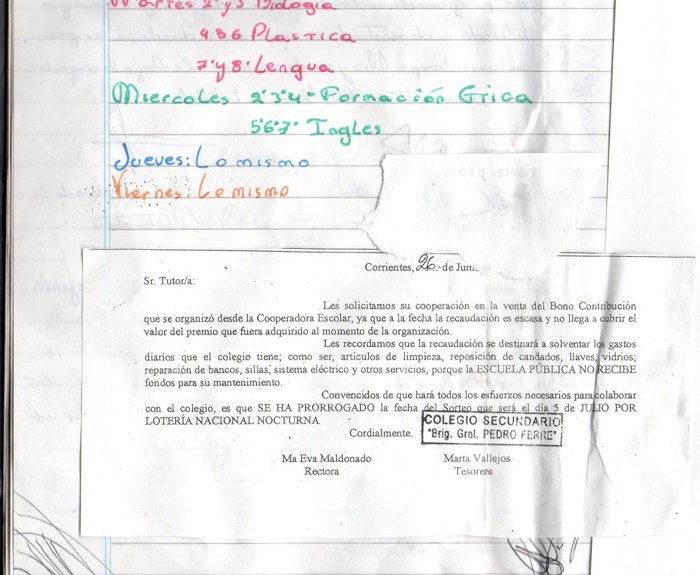 Martes 1º y 3 Biologia
4 5 6 Plastica
7º y 8º Lengua
Miercoles 2º3º4º Formación Etica
5º6º7º Ingles
Jueves: Lo mismo
Viernes: Lo mismo
Corrientes, 26 de Jun
Sr. Tutor/a:
Les solicitamos su cooperación en la venta del Bono Contribución
que se organizó desde la Cooperadora Escolar, ya que a la fecha la recaudación es escasa y no llega a cubrir el
valor del premio que fuera adquirido al momento de la organización.
Les recordamos que la recaudación se destinará a solventar los gastos
diarios que el colegio tiene; como ser, artículos de limpieza, reposición de candados, llaves, vidrios;
reparación de bancos, sillas, sistema eléctrico y otros servicios, porque la ESCUELA PÚBLICA NO RECIBE
fondos para su mantenimiento.
Convencidos de que hará todos los esfuerzos necesarios para colaborar
con el colegio, es que SE HA PRORROGADO la fecha del Sorteo que será el día 5 de JULIO POR
LOTERÍA NACIONAL NOCTURNA
COLEGIO SECUNDARIO
Cordialmente.
"Brig. Gral. PEDRO FERRE"
Ma Eva Maldonado Marta Vallejos
Rectora Tesorera